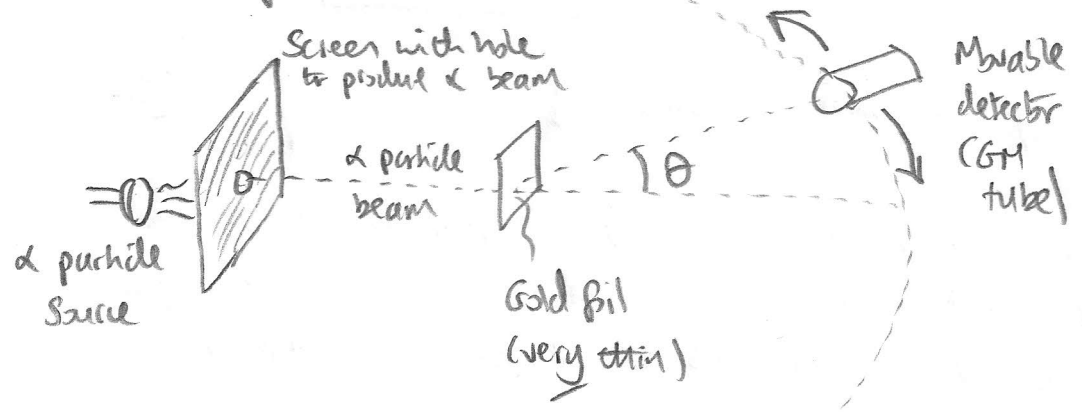 Screen with hole
to produce α beam
Movable
detector
(GM
tube)
α particle
beam
θ
α particle
source
Gold foil
(very thin)